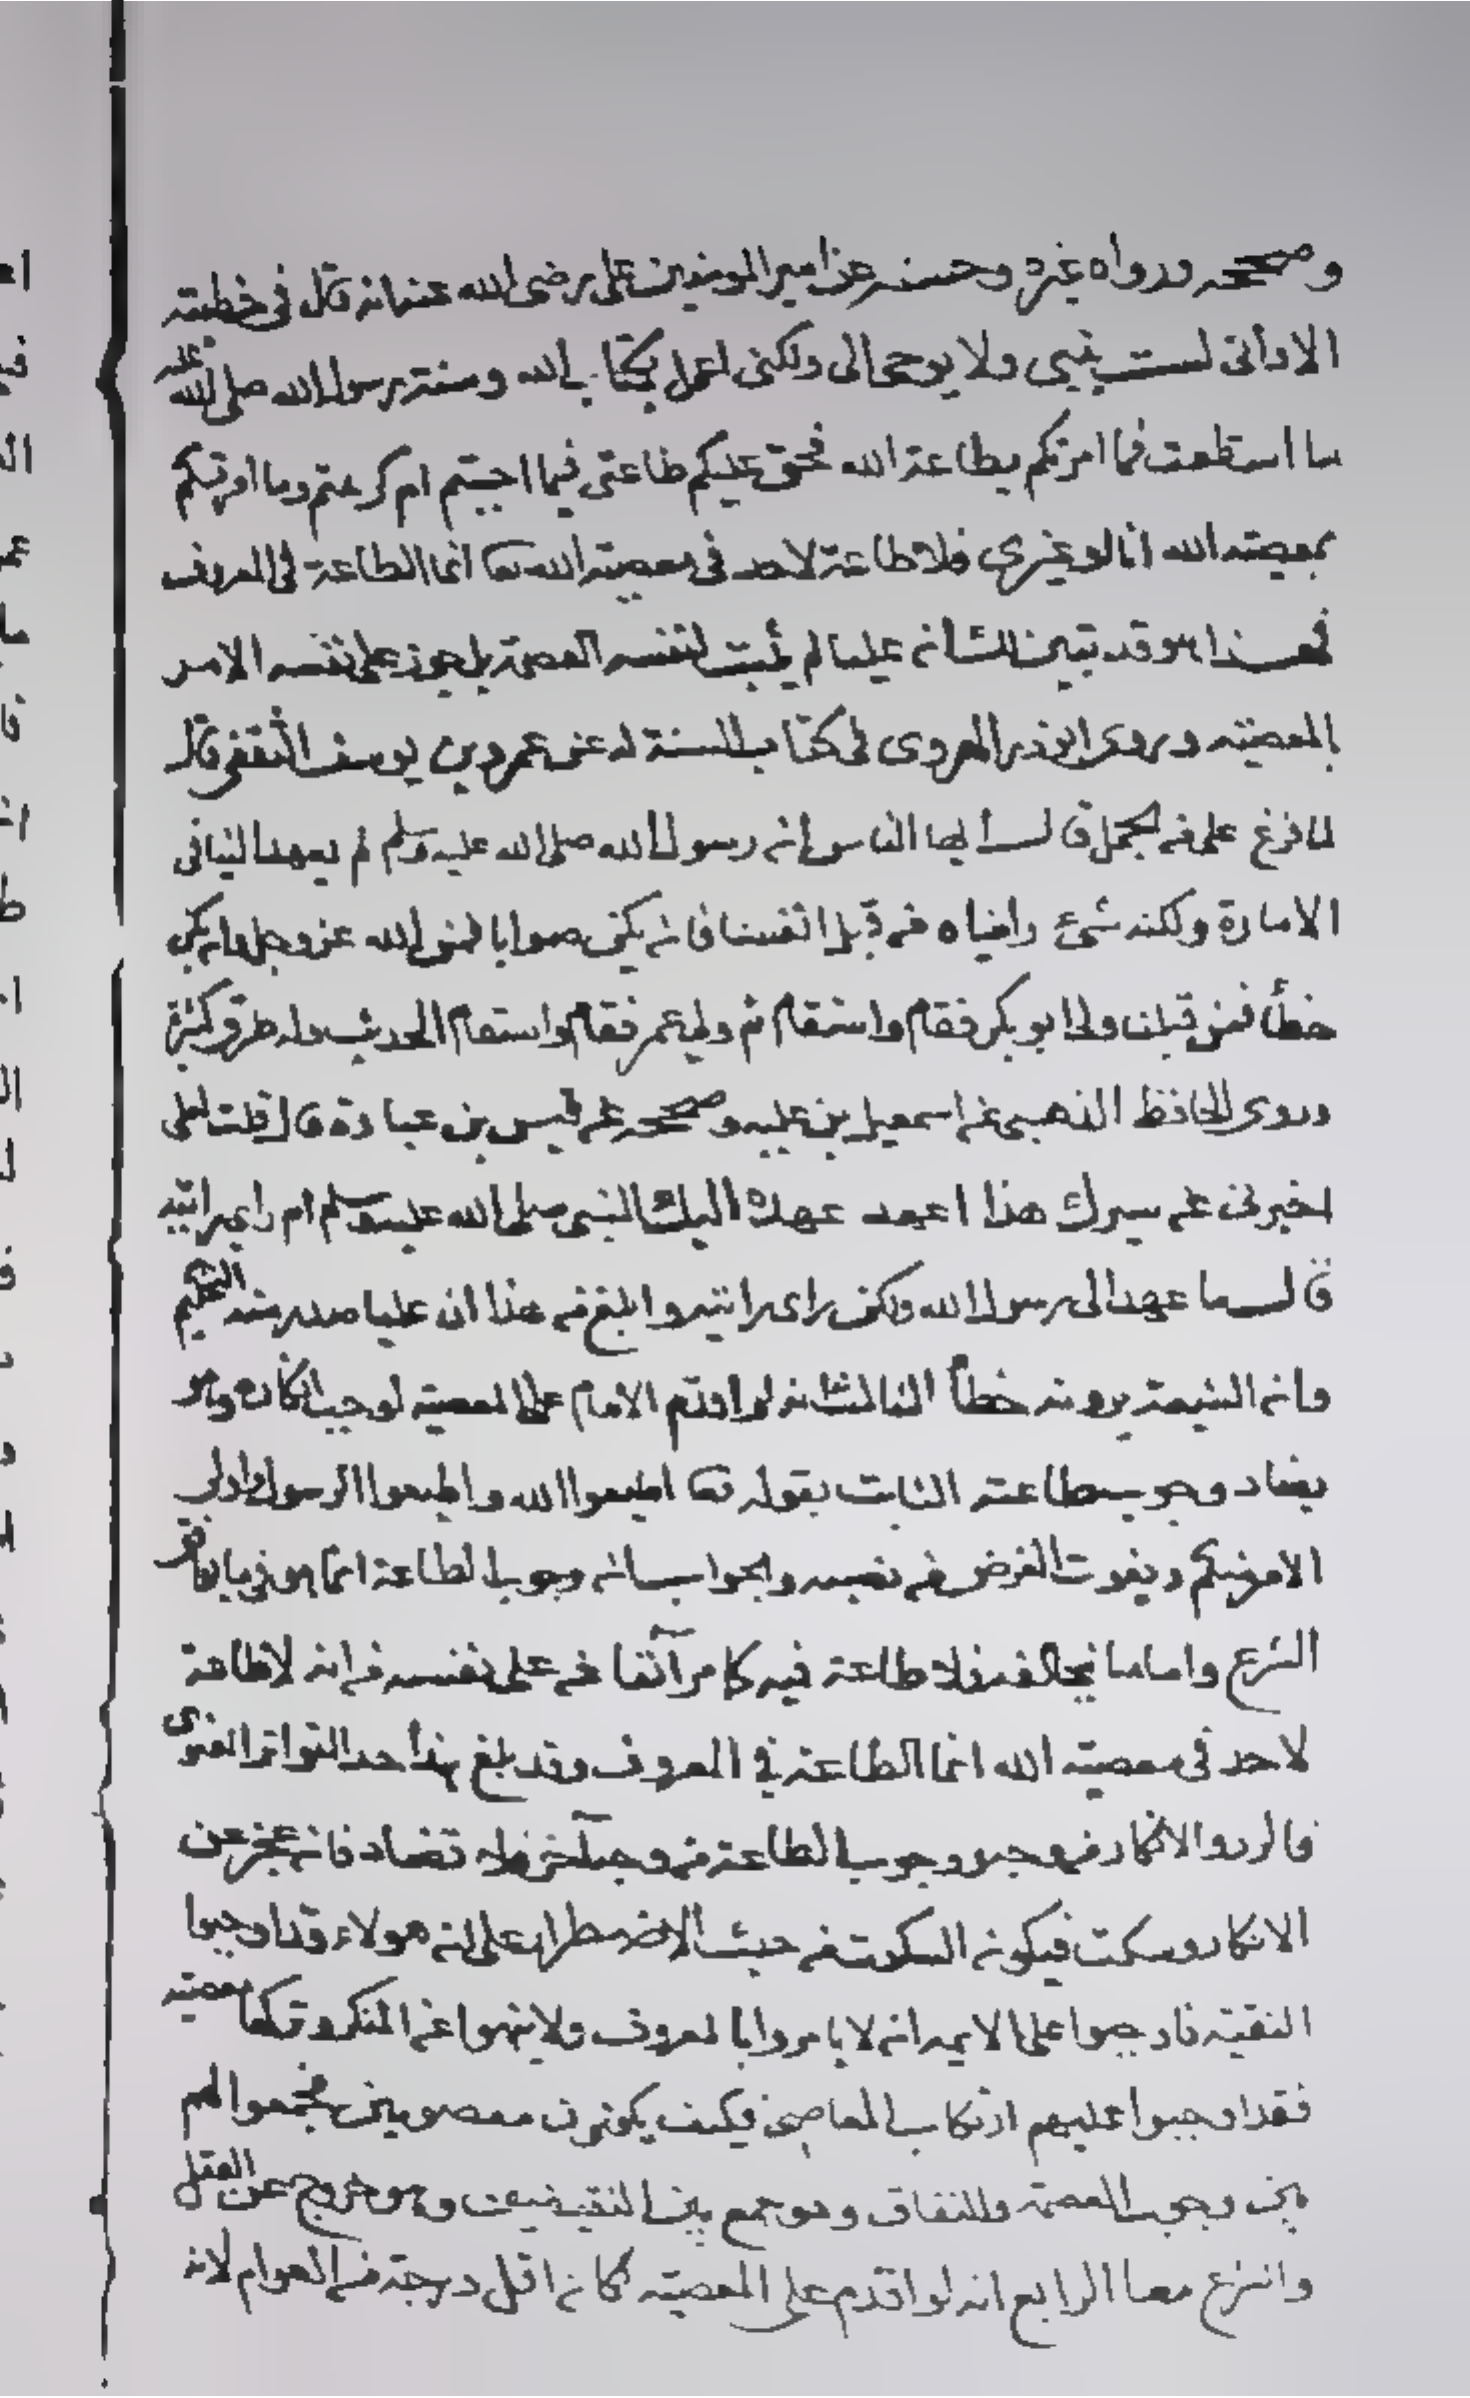 وصححه ورواه غيره وحسنه عن امير المومنين على رضى الله عنه انه قال فى خطبته
الا وانى لست بنبى ولا يوحى الى ولكنى اعمل بكتاب الله وسنة رسول الله صلى الله عليه
ما استطعت فما امرتكم بطاعة الله فحق عليكم طاعتى فيما احببتم ام كرهتم وما امرتكم
بمعصيته الله انا او غيرى فلا طاعة لاحد فى معصيته الله تعا انما الطاعة فى المعروف
فهذا هو قد تبين لك ان عليا لم يثبت لنفسه العصمة بل جوز على نفسه الامر
بالمعصيته وروى ابو ذر الهروى فى كتاب السنة له عن عمرو بن يوسف الثقفى قال
لما فرغ على من الجمل قال أيها الناس ان رسول الله صلى الله عليه وسلم لم يعهد الينا فى
الامارة ولكنه شىء رايناه من قبل انفسنا فان يكن صوابا فمن الله عز وجل وان يكن
خطأ فمن قبلنا ولى ابو بكر فقام واستقام ثم ولى عمر فقام واستقام الحديث وله طرق كثيرة
وروى الحافظ الذهبى عن اسمعيل بن عليه وصححه عن قيس بن عبادة قال قلت لعلى
اخبرنى عن سيرك هذا اعهد عهده اليك النبى صلى الله عليه وسلم ام راى رايته
قال ما عهد الى رسول الله ولكن راى رايته وابلغ من هذا ان عليا صدر منه التحكيم
وان الشيعة يرونه خطأ الثالث انه لو اقدم الامام على المعصيته لوجب انكاره وهو
يضاد وجوب طاعته الثابت بقوله تعا اطيعوا الله واطيعوا الرسول واولى
الامر منكم ويفوت الغرض من نصبه والجواب ان وجوب الطاعة انما هو فيما يوافق
الشرع واما ما يخالفه فلا طاعة فيه كما مر آنفا عن على نفسه من انه لا طاعة
لاحد فى معصيته الله انما الطاعة فى المعروف وقد بلغ هذا حد التواتر المعنوى
فالرد والانكار من وجه ووجوب الطاعة من وجه آخر فلا تضاد فان عجز عن
الانكار وسكت فيكون السكوت من حيث الاضطرار على ان هولاء قد اوجبوا
التقيته فاوجبوا على الايمه ان لا يامروا بالمعروف ولا ينهوا عن المنكر وتركها معصيته
فقد اوجبوا عليهم ارتكاب المعاصى فكيف يكونون معصومين فجمعوا لهم
بين وجوب العصمة والنفاق وهو جمع بين النقيضين وهو خروج عن العقل
والشرع معا الرابع انه لو اقدم على المعصيته لكان اقل درجة من العوام لانه